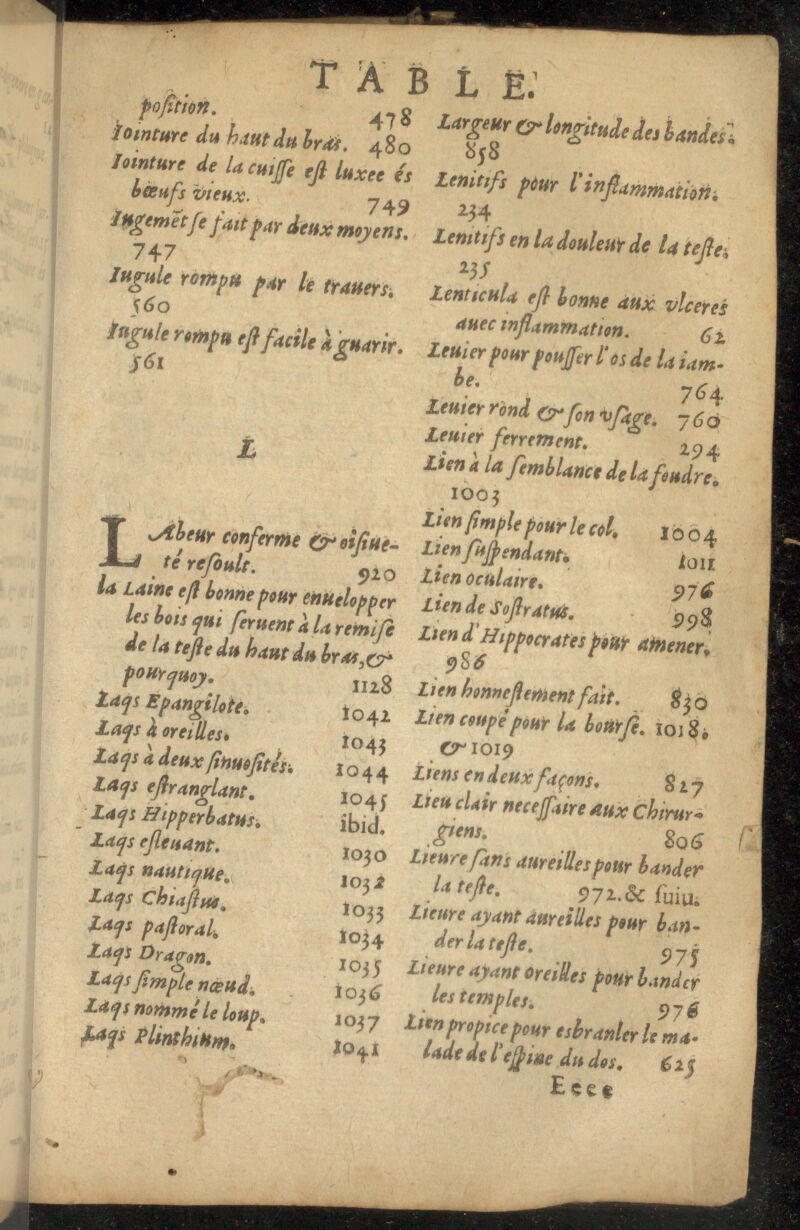 TABLE.
position.
478
Iointure du haut du bras. 480
Iointure de la cuisse est luxee és
bœufs vieux. 749
Iugemẽt se fait par deux moyens.
747
Iugule rompu par le trauers.
560
Iugule rompu est facile à guarir.
561
L
LAbeur conferme & oisiue-
té resoult. 920
la Laine est bonne pour enuelopper
les bois qui seruent à la remise
de la teste du haut du bras, &
pourquoy. 1128
Laqs Epangilote. 1042
Laqs à oreilles. 1043
Laqs à deux sinuosités. 1044
Laqs estranglant. 1045
Laqs Hipperbatus. ibid.
Laqs esleuant. 1030
Laqs nautique. 1032
Laqs Chiastus. 1033
Laqs pastoral. 1034
Laqs Dragon. 1035
Laqs simple nœud. 1036
Laqs nommé le loup. 1037
Laqs Plinthium. 1041
Largeur & longitude des bandes.
858
Lenitifs pour l'inflammation.
234
Lenitifs en la douleur de la teste.
235
Lenticula est bonne aux vlceres
auec inflammation. 62
Leuier pour pousser l'os de la iam-
be. 764
Leuier rond & son vsage. 760
Leuier ferrement. 294
Lien à la semblance de la foudre.
1003
Lien simple pour le col. 1004
Lien suspendant. 1011
Lien oculaire. 976
Lien de Sostratus. 998
Lien d'Hippocrates pour amener.
986
Lien honnestement fait. 830
Lien coupé pour la bourse. 1018.
& 1019
Liens en deux façons. 827
Lieu clair necessaire aux Chirur-
giens. 806
Lieure sans aureilles pour bander
la teste. 972. & suiu.
Lieure ayant aureilles pour ban-
der la teste. 975
Lieure ayant oreilles pour bander
les temples. 976
Lien propice pour esbranler le ma-
lade de l'espine du dos. 625
Eeee